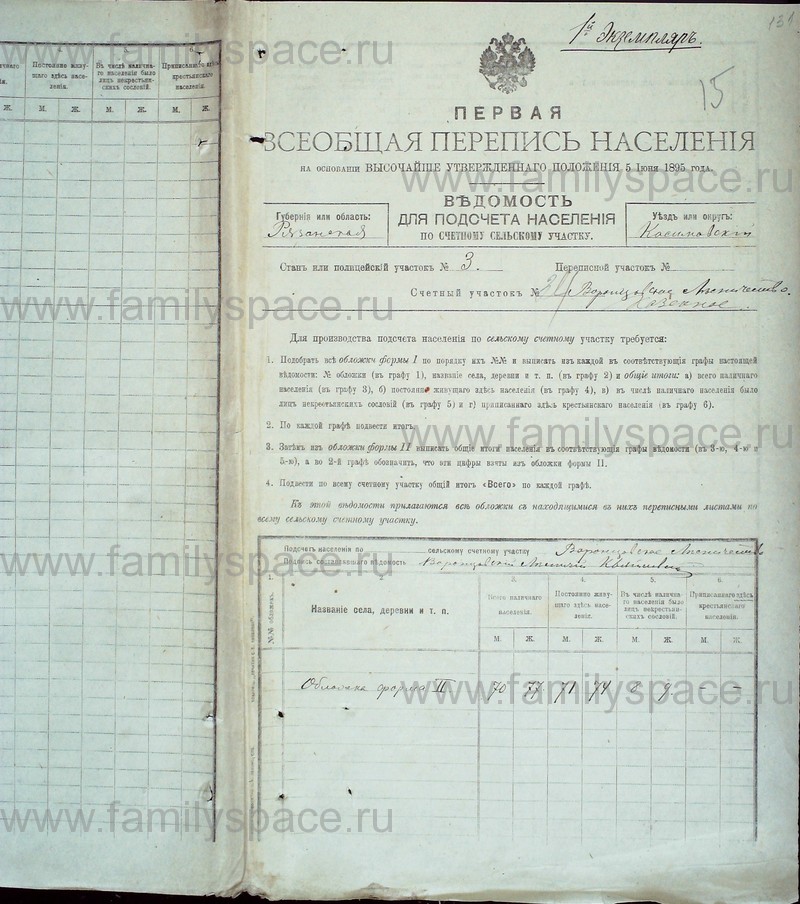 1й Экземпляръ.
151
15
ПЕРВАЯ
ВСЕОБЩАЯ ПЕРЕПИСЬ НАСЕЛЕНІЯ
НА ОСНОВАНІИ ВЫСОЧАЙШЕ УТВЕРЖДЕННАГО ПОЛОЖЕНІЯ 5 ІЮНЯ 1895 ГОДА.
ВѢДОМОСТЬ
ДЛЯ ПОДСЧЕТА НАСЕЛЕНІЯ
ПО СЧЕТНОМУ СЕЛЬСКОМУ УЧАСТКУ.
Губернія или область:
Рязанская
Уѣздъ или округъ:
Касимовскій
Станъ или полицейскій участокъ № 3. Переписной участокъ №
Счетный участокъ № Воронцовское Лѣсничество.
Казенное.
Для производства подсчета населенія по сельскому счетному участку требуется:
1. Подобрать всѣ обложки формы I по порядку ихъ №№ и выписать изъ каждой въ соотвѣтствующія графы настоящей
вѣдомости: № обложки (въ графу 1), названіе села, деревни и т. п. (въ графу 2) и общіе итоги: а) всего наличнаго
населенія (въ графу 3), б) постоянно живущаго здѣсь населенія (въ графу 4), в) въ числѣ наличнаго населенія было
лицъ некрестьянскихъ сословій (въ графу 5) и г) приписаннаго здѣсь крестьянскаго населенія (въ графу 6).
2. По каждой графѣ подвести итогъ.
3. Затѣмъ изъ обложки формы II выписать общіе итоги населенія въ соотвѣтствующія графы вѣдомости (въ 3-ю, 4-ю и
5-ю), а во 2-й графѣ обозначить, что эти цифры взяты изъ обложки формы II.
4. Подвести по всему счетному участку общій итогъ «Всего» по каждой графѣ.
Къ этой вѣдомости прилагаются всѣ обложки съ находящимися въ нихъ переписными листами по
всему сельскому счетному участку.
Подсчетъ населенія по сельскому счетному участку Воронцовское Лѣсничество
Подпись составлявшаго вѣдомость Воронцовскій Лѣсничій
1. 3. 4. 5. 6.
№№ обложекъ.
Названіе села, деревни и т. п.
Всего наличнаго населенія.
Постоянно живущаго здѣсь населенія.
Въ числѣ наличнаго населенія было лицъ некрестьянскихъ сословій.
Приписаннаго здѣсь крестьянскаго населенія.
М. Ж. М. Ж. М. Ж. М. Ж.
Обложка форма II 70 77 71 74 8 9. – –
Постоянно живущаго здѣсь населенія.
Въ числѣ наличнаго населенія было лицъ некрестьянскихъ сословій.
Ж. М. Ж. М. Ж. М. Ж.
www.familyspace.ru
www.familyspace.ru
www.familyspace.ru
www.familyspace.ru
www.familyspace.ru
www.familyspace.ru
www.familyspace.ru
www.familyspace.ru